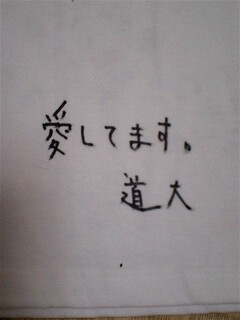 愛してます。
道大